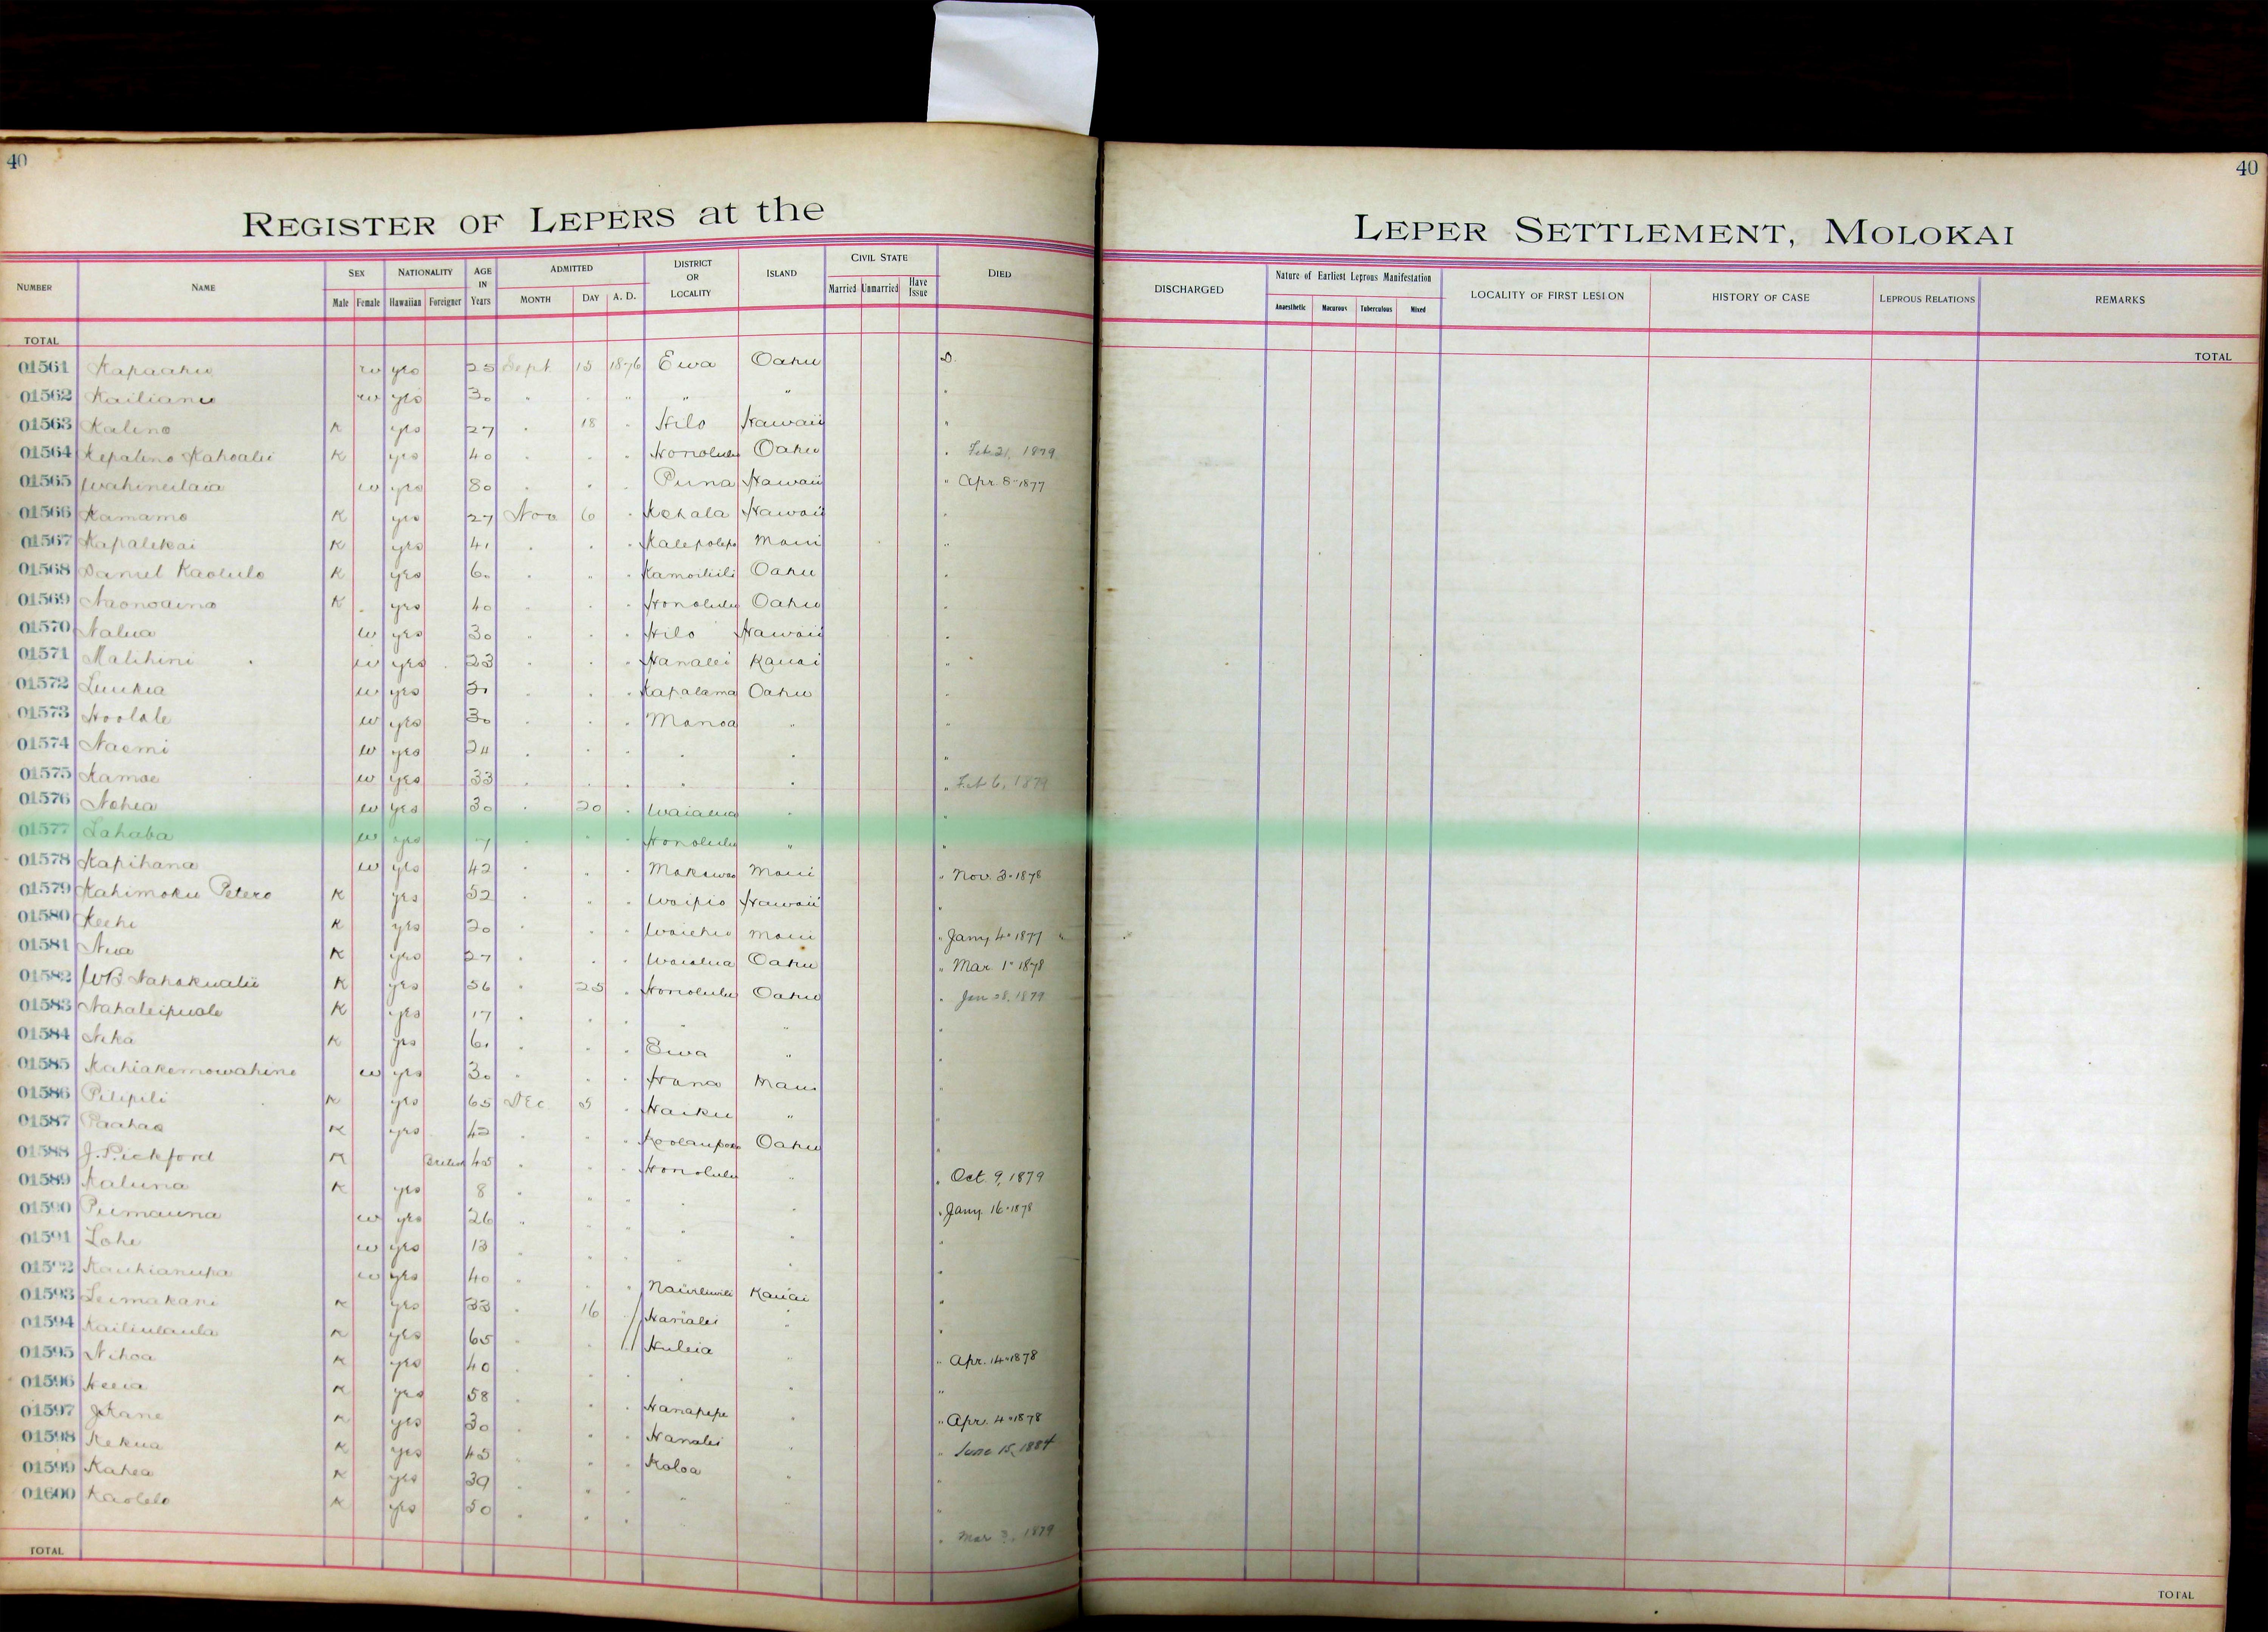 40
40
REGISTER OF LEPERS at the
LEPER SETTLEMENT, MOLOKAI
NUMBER NAME SEX Male Female NATIONALITY Hawaiian Foreigner AGE IN Years ADMITTED MONTH DAY A. D. DISTRICT OR LOCALITY ISLAND CIVIL STATE Married Unmarried Have Issue DIED
DISCHARGED Nature of Earliest Leprous Manifestation Anaesthetic Macurous Tuberculous Mixed LOCALITY OF FIRST LESION HISTORY OF CASE LEPROUS RELATIONS REMARKS
TOTAL
TOTAL
01561 Kapaahu w yes 25 Sept 15 1876 Ewa Oahu D.
01562 Kailianu w yes 30 " " " " " "
01563 Kalino K yes 27 " 18 " Hilo Hawaii "
01564 Kepalino Kahoalii K yes 40 " " " Honolulu Oahu " Feb 21, 1879
01565 Wahineilaia w yes 80 " " " Puna Hawaii " Apr. 8 - 1877
01566 Kamamo K yes 27 Nov 6 " Kohala Hawaii "
01567 Kapalekai K yes 41 " " " Kalepolepo Maui "
01568 Daniel Kaolulo K yes 60 " " " Kamoiliili Oahu "
01569 Naonoaina K yes 40 " " " Honolulu Oahu "
01570 Nalua w yes 30 " " " Hilo Hawaii "
01571 Malihini w yes 23 " " " Hanalei Kauai "
01572 Luukia w yes " " " Kapalama Oahu "
01573 Hoolale w yes 30 " " " Manoa " "
01574 Naomi w yes 24 " " " " " "
01575 Kamae w yes 33 " " " " " " Feb 6, 1879
01576 Nohea w yes 30 " 20 " Waialua " "
01577 Lahaba w yes 7 " " " Honolulu " "
01578 Kapihana w yes 42 " " " Makawao Maui " Nov. 3 - 1878
01579 Kahimoku Petero K yes 52 " " " Waipio Hawaii "
01580 Keehi K yes 20 " " " Waiehu Maui " Jany 4 - 1877 "
01581 Niua K yes 27 " " " Waialua Oahu " Mar. 1 - 1878
01582 WB Nahokualii K yes 56 " 25 " Honolulu Oahu " Jan 28, 1879
01583 Nahaleipuole K yes 17 " " " " " "
01584 Nika K yes 61 " " " Ewa " "
01585 Kahiakemowahine w yes 30 " " " Hana Maui "
01586 Pilipili K yes 65 Dec 5 " Haiku " "
01587 Paahao K yes 42 " " " Koolaupoko Oahu "
01588 J. Pickford K British 45 " " " Honolulu " " Oct. 9, 1879
01589 Kaluna K yes 8 " " " " " " Jany 16 - 1878
01590 Puimauna w yes 26 " " " " " "
01591 Lohe w yes 13 " " " " " "
01592 Kauhianupa w yes 40 " " " Nawiliwili Kauai "
01593 Leimakani K yes 33 " 16 " Hanalei " "
01594 Kailiulaula K yes 65 " " " Huleia " " Apr. 14 - 1878
01595 Nihoa K yes 40 " " " " " "
01596 Heeia K yes 58 " " " Hanapepe " " Apr. 4 - 1878
01597 J Kane K yes 30 " " " Hanalei " " June 15, 1884
01598 Kekua K yes 45 " " " Koloa " "
01599 Kahea K yes 39 " " " " " "
01600 Kaolelo K yes 50 " " " " Mar 3, 1879
TOTAL
TOTAL